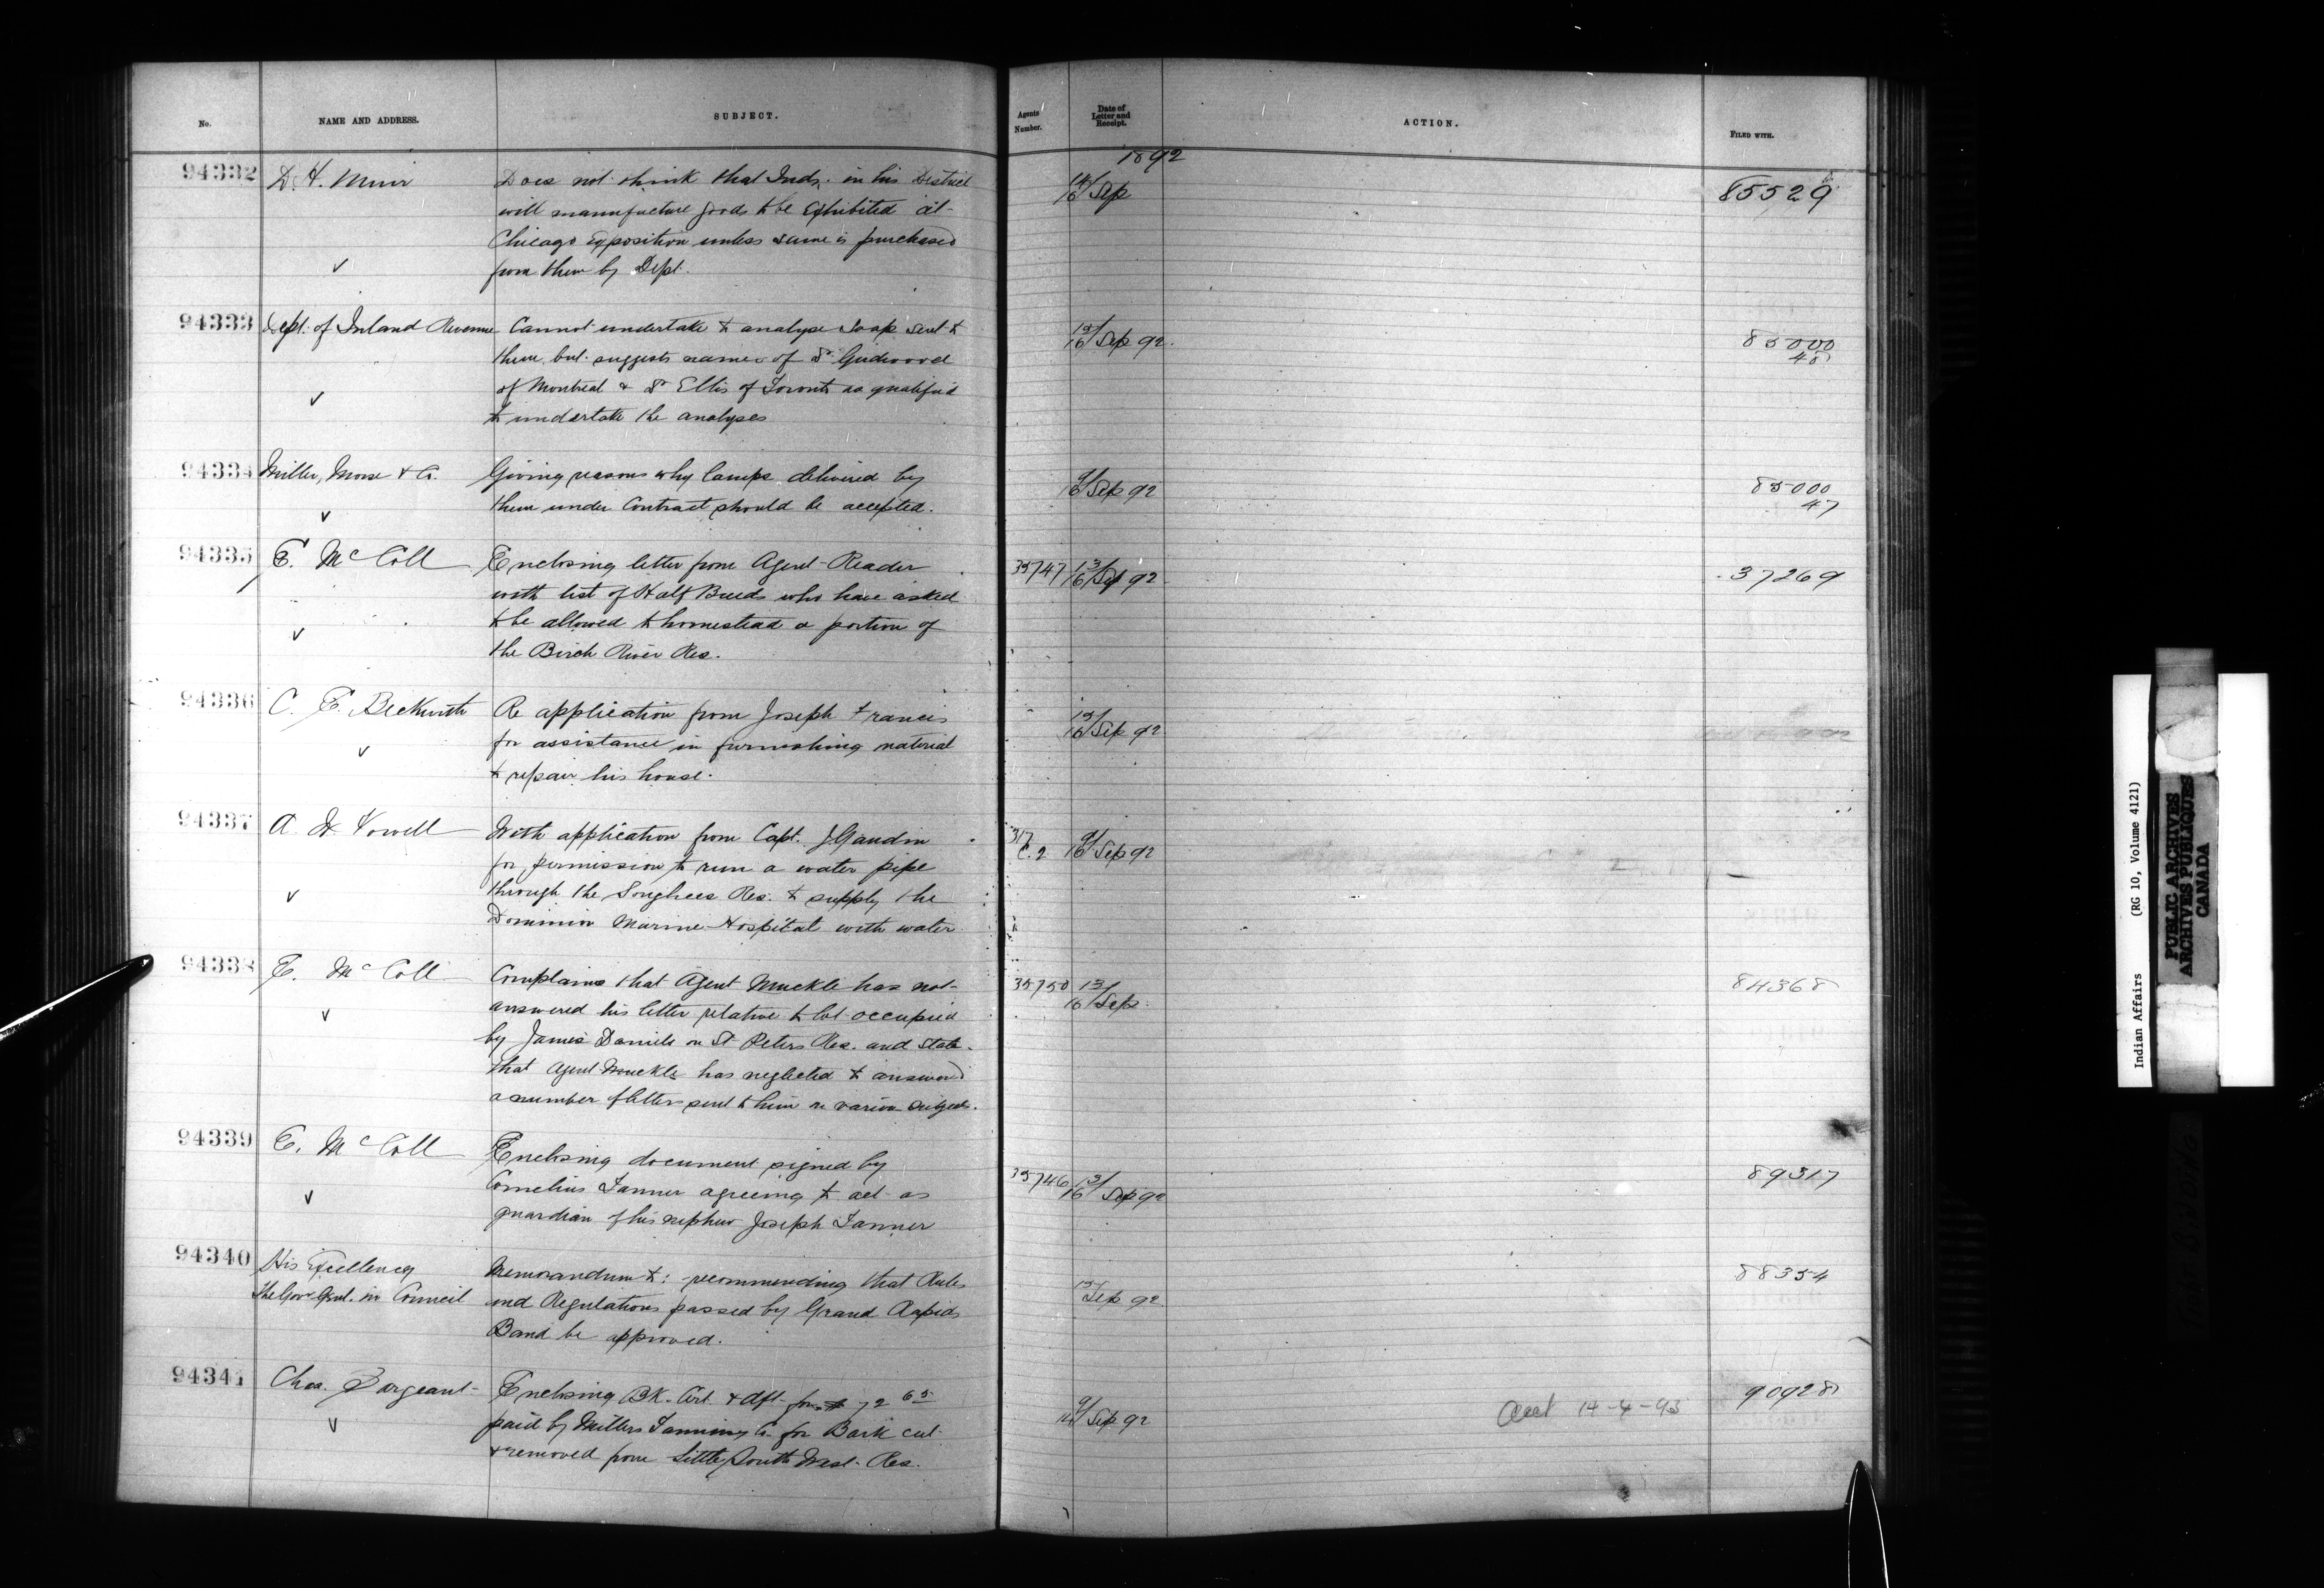 No.
NAME AND ADDRESS.
SUBJECT.
Agents' Number.
Date of Letter and Receipt.
ACTION.
FILED WITH.
1892
94332 D. H. Muir Does not think that Inds. in his District 14/16 Sep 85529
will manufacture goods to be Exhibited at
Chicago Exposition unless same is purchased
from them by Dept.
94333 Dept. of Inland Revenue Cannot undertake to analyse Soap sent to 15/16 Sep 92. 85000
them but suggests names of Dr Girdwood 48
of Montreal & Dr Ellis of Toronto as qualified
to undertake the analyses
94334 Miller, Morse & Co. Giving reasons why lamps delivered by 9/16 Sep 92 85000
them under Contract should be accepted. 47
94335 E. McColl Enclosing letter from Agent Reader 35747 13/16 Sep 92 37269
with list of Half Breeds who have asked
to be allowed to homestead a portion of
the Birch River Res.
94336 C. E. Beckwith Re application from Joseph Francis 15/16 Sep 92
for assistance in furnishing material
to repair his house.
94337 A. W. Vowell With application from Capt. J. Gaudin 317 C. 2 9/16 Sep 92
for permission to run a water pipe
through the Songhees Res. to supply the
Dominion Marine Hospital with water
94338 E. McColl Complains that Agent Muckle has not 35750 13/16 Sep. 84368
answered his letter relative to lot occupied
by James Daniels on St Peters Res. and State
that Agent Muckle has neglected to answer
a number of letters sent to him re various subjects.
94339 E. McColl Enclosing document signed by
Cornelius Tanner agreeing to act as 35746 13/16 Sep 92 89317
guardian of his nephew Joseph Tanner
94340 His Excellency Memorandum to: recommending that Rules 15/ Sep 92 88354
the Govr Genl. in Council and Regulations passed by Grand Rapids
Band be approved.
94341 Chas. Sargeant Enclosing Bk. Cert. & dft. for $ 72 65 9/16 Sep 92 14-4-93 90928
paid by Millers Tanning Co for Bark cut
& removed from Little South West Res.
Indian Affairs (RG 10, Volume 4121)
PUBLIC ARCHIVES
ARCHIVES PUBLIQUES
CANADA